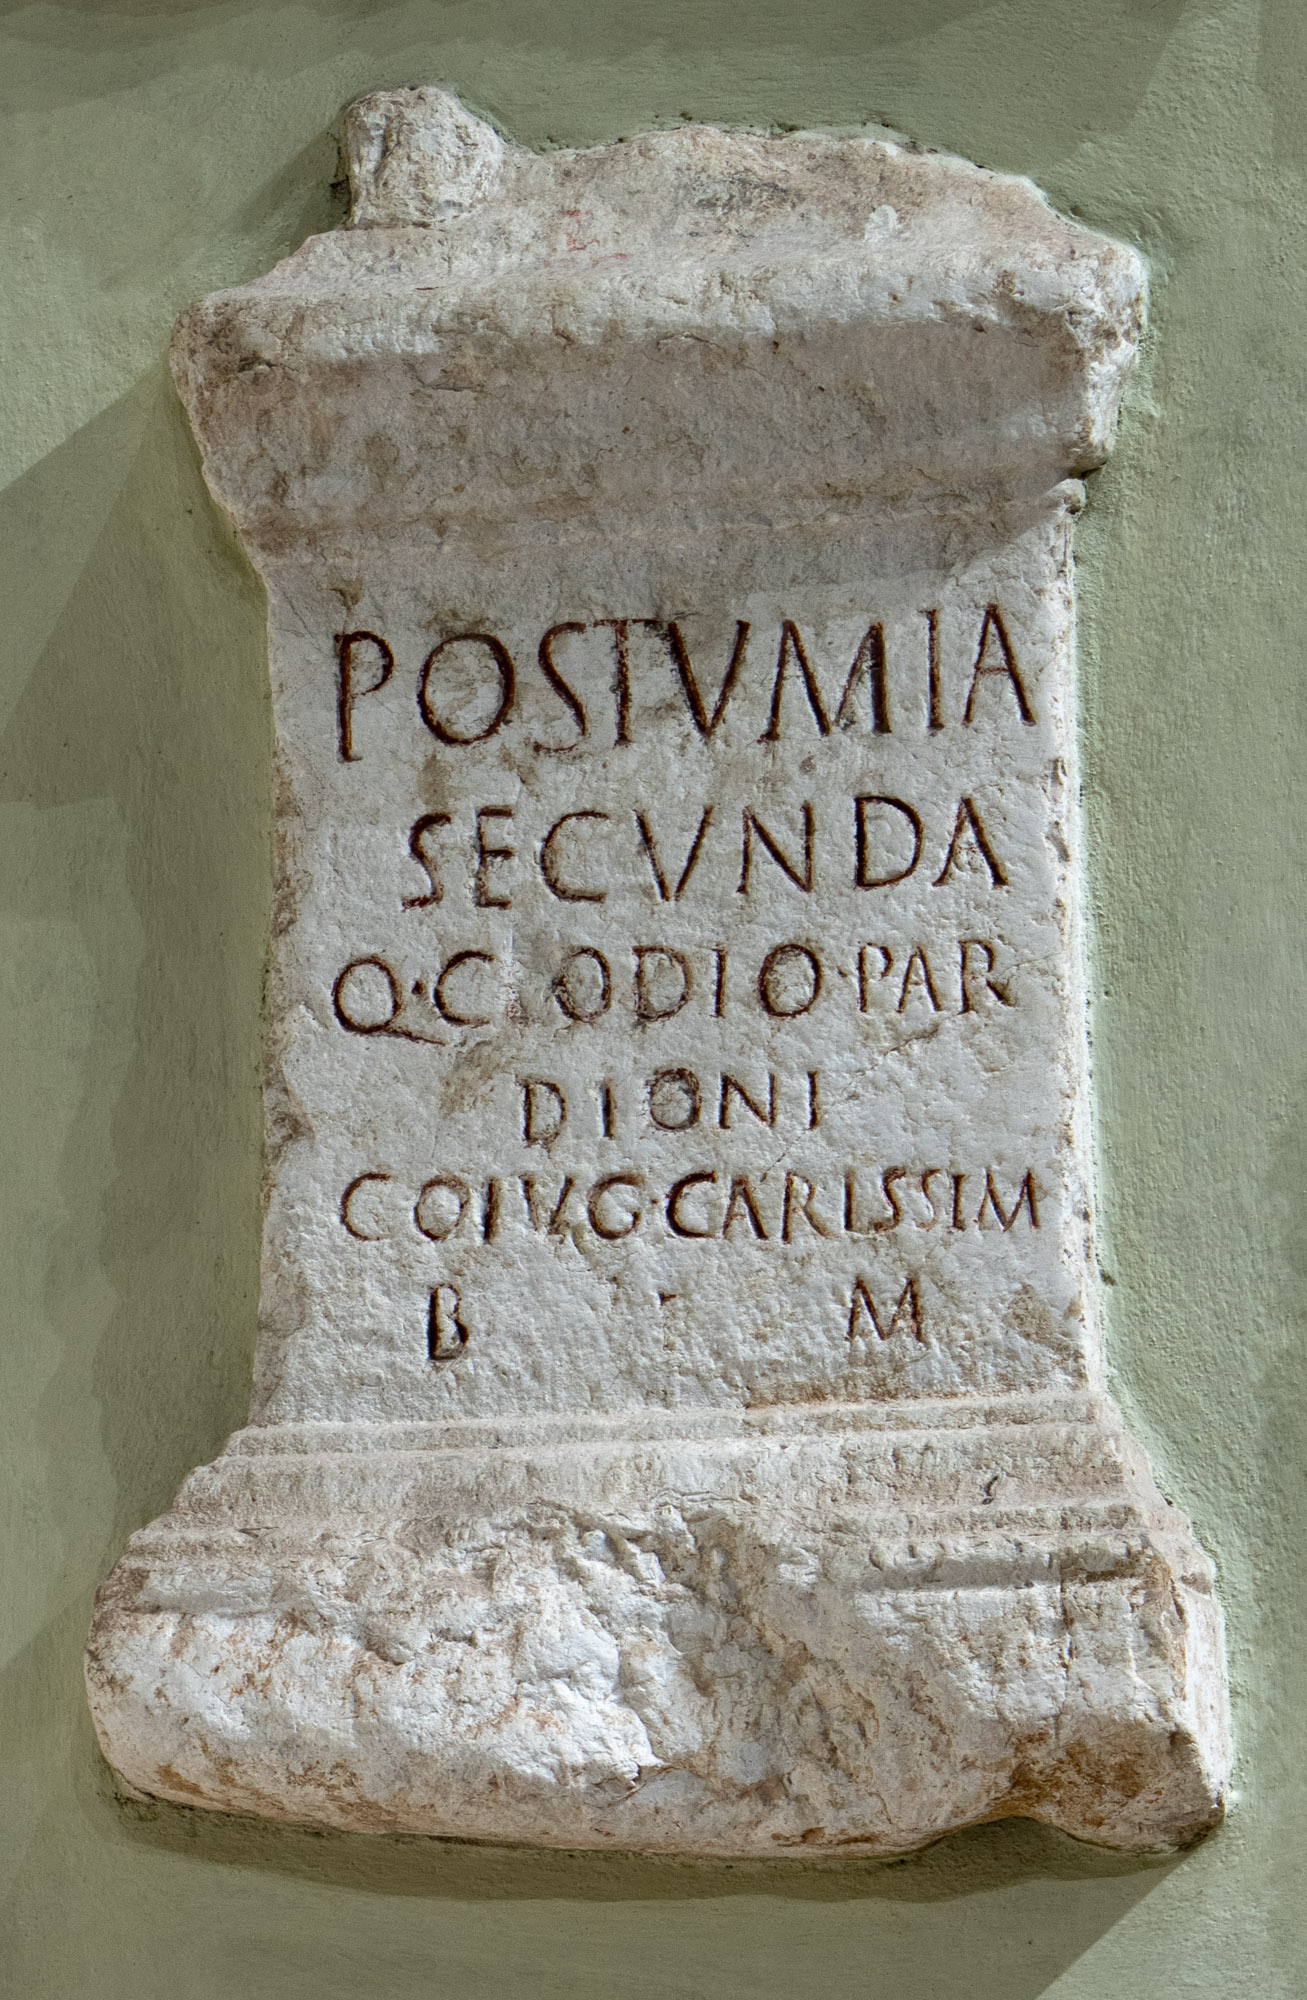 POSTVMIA
SECVNDA
Q·CLODIO·PAR
DIONI
COIVG·CARISSIM
B M